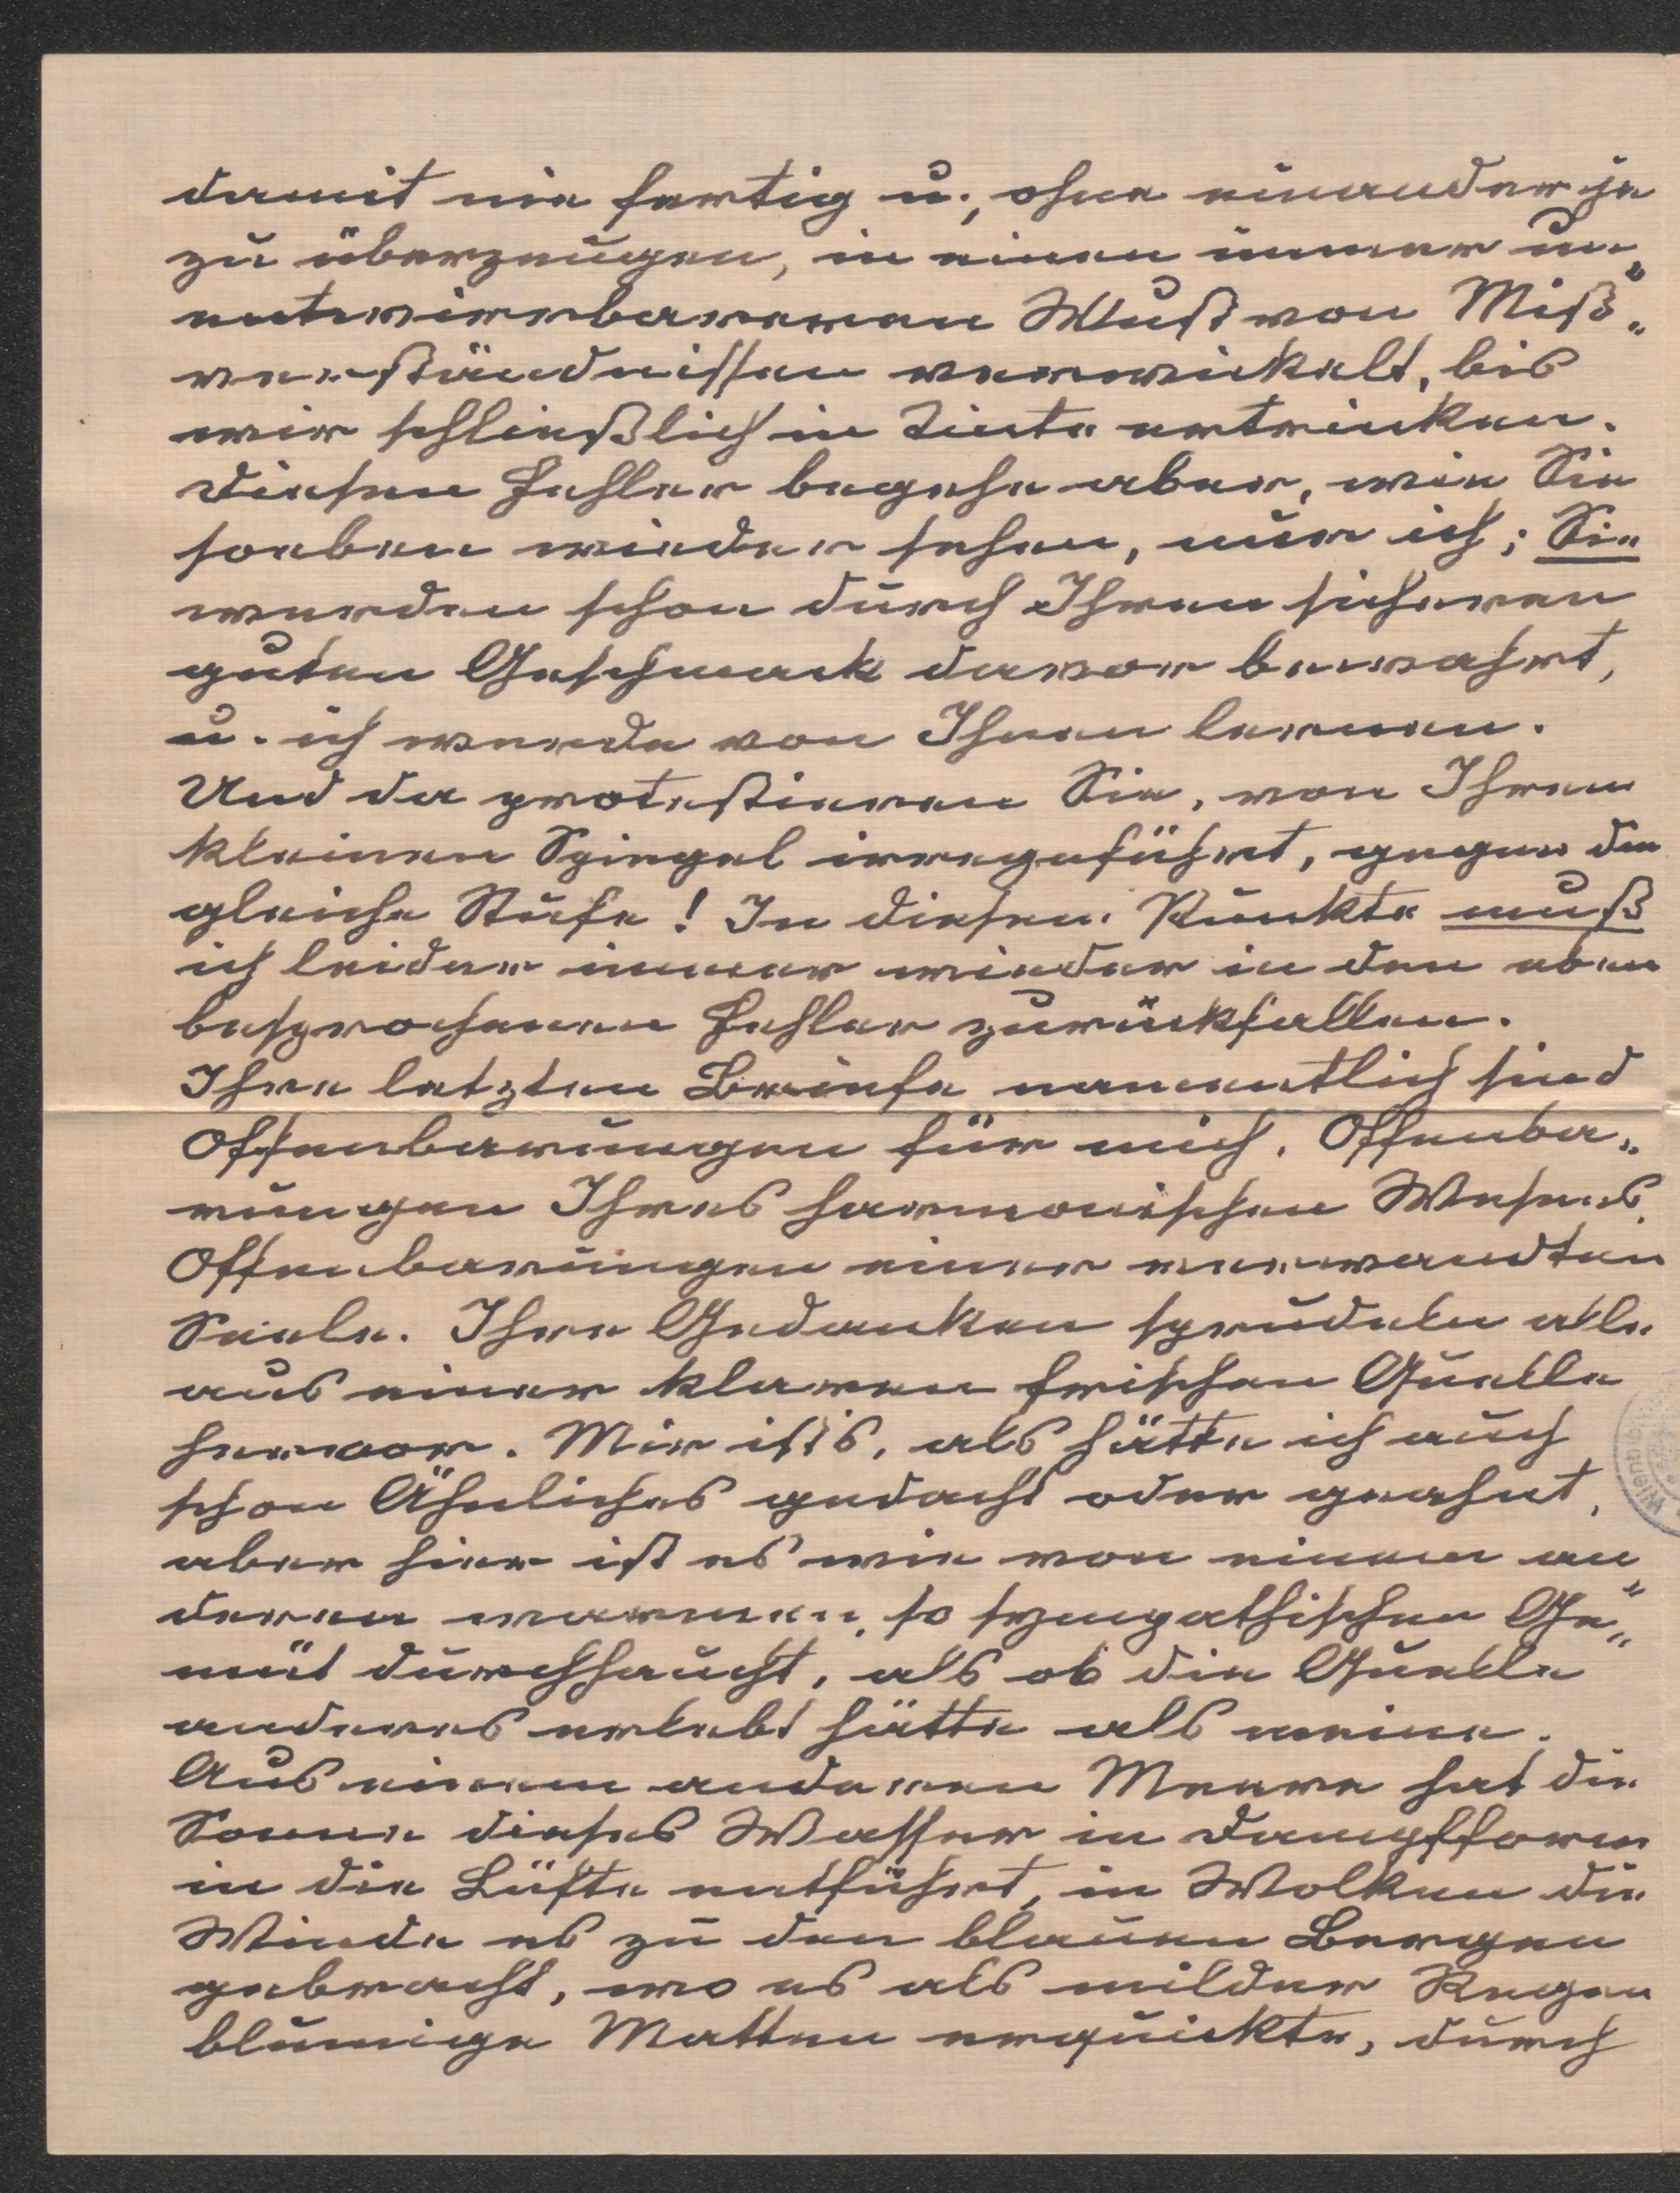 damit nie fertig u., ohne einander je
zu überzeugen, in einen immer un„
entwirrbareren Wust von Miß„
verständnissen verwickelt, bis
wir schließlich in Tinte ertrinken.
Diesen Fehler begehe aber, wie Sie
soeben wieder sehen, nur ich; Sie
werden schon durch Ihren sicheren
guten Geschmack davor bewahrt,
u. ich werde von Ihnen lernen.
Und da protestieren Sie, von Ihrem
kleinen Spiegel irregeführt, gegen die
gleiche Stufe! In diesem Punkte muß
ich leider immer wieder in den eben
besprochenen Fehler zurückfallen.
Ihre letzten Briefe namentlich sind
Offenbarungen für mich, Offenba„
rungen Ihres harmonischen Wesens,
Offenbarungen einer verwandten
Seele. Ihre Gedanken sprudeln alle
aus einer klaren frischen Quelle
hervor. Mir ist's, als hätte ich auch
schon Ähnliches gedacht oder geahnt,
aber hier ist es wie von einem an„
deren warmen, so sympathischen Ge„
müt durchhaucht, als ob die Quelle
anderes erlebt hätte als meine.
Aus einem anderen Meere hat die
Sonne dieses Wasser in Dampfform
in die Lüfte entführt, in Wolken die
Winde es zu den blauen Bergen
gebracht, wo es als milder Regen
blumige Matten erquickte, durch